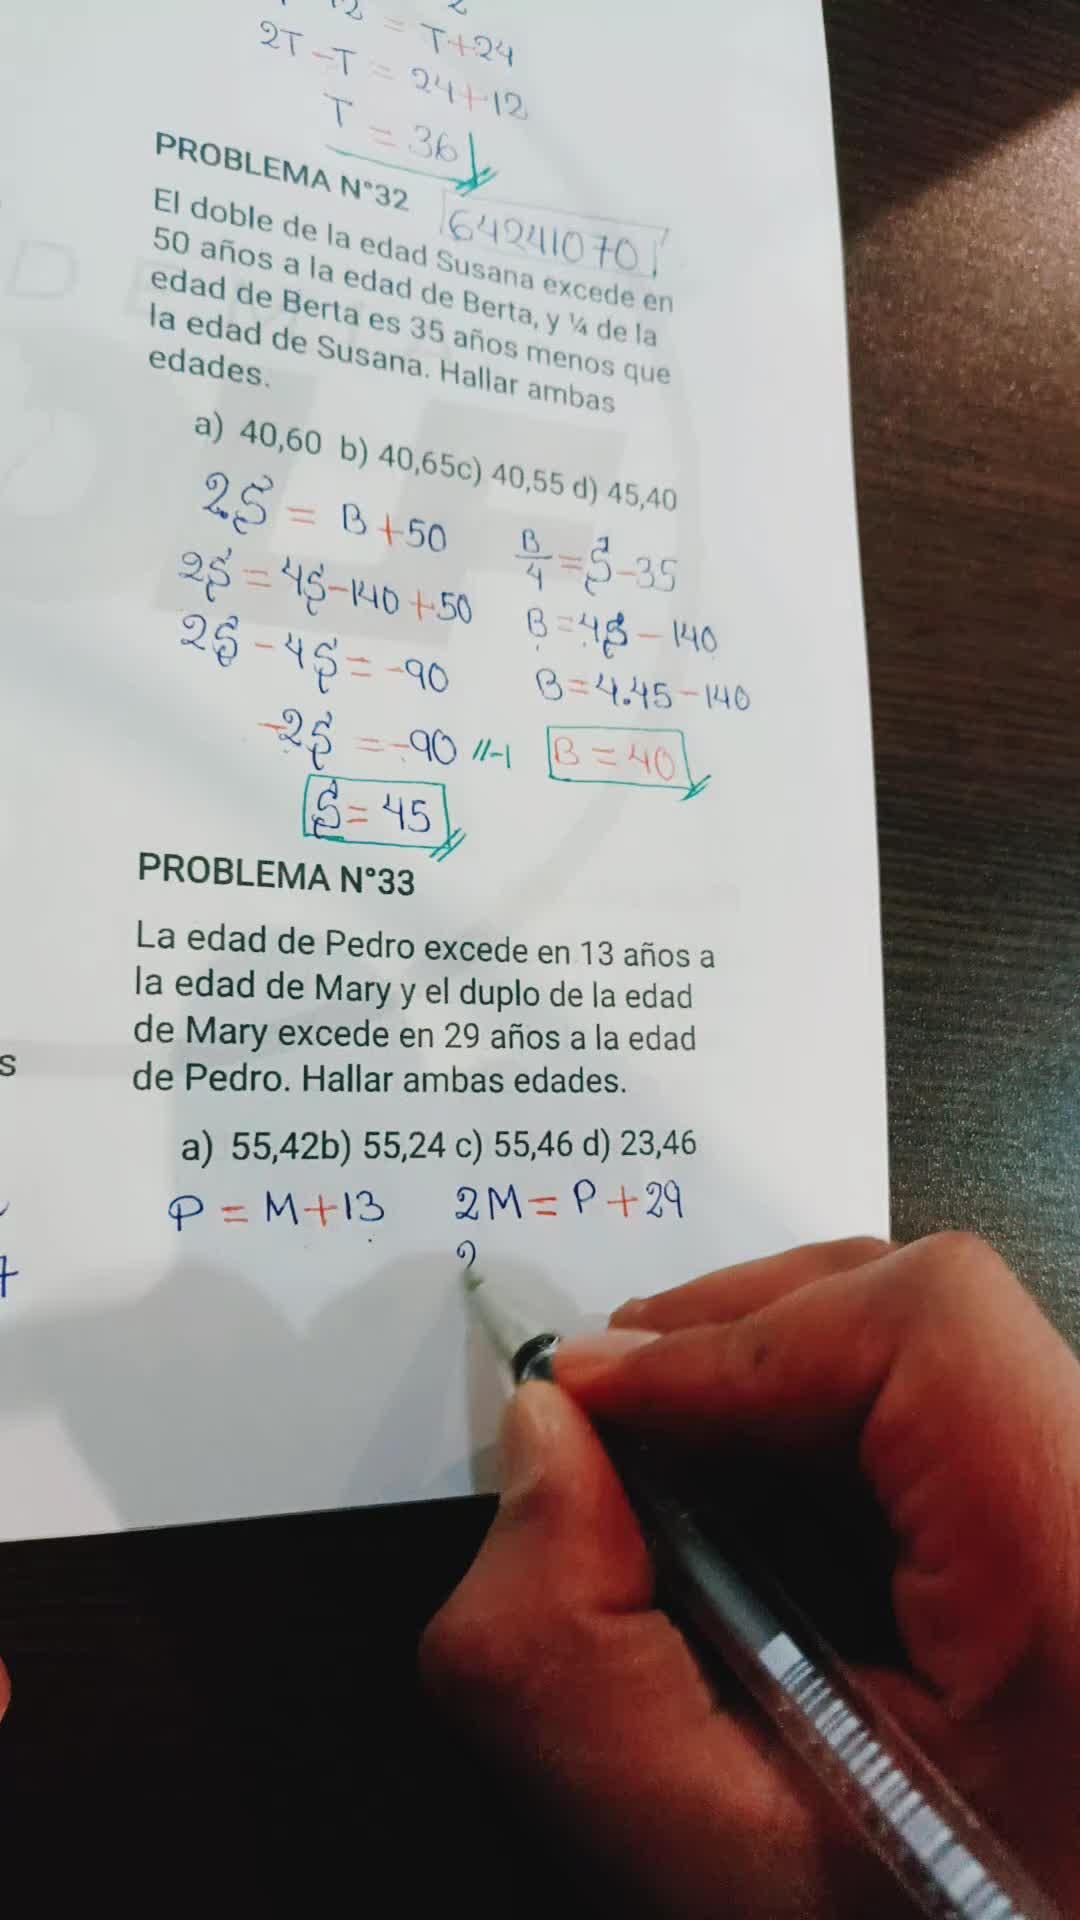 = T+24
2T-T = 24+12
T = 36
PROBLEMA N°32
64241070
El doble de la edad Susana excede en
50 años a la edad de Berta, y ¼ de la
edad de Berta es 35 años menos que
la edad de Susana. Hallar ambas
edades.
a) 40,60 b) 40,65c) 40,55 d) 45,40
2S = B+50
2S = 4S-140+50
2S - 4S = -90
-2S = -90 //-1
S = 45
B/4 = S-35
B = 4S - 140
B = 4.45 - 140
B = 40
PROBLEMA N°33
La edad de Pedro excede en 13 años a
la edad de Mary y el duplo de la edad
de Mary excede en 29 años a la edad
de Pedro. Hallar ambas edades.
a) 55,42b) 55,24 c) 55,46 d) 23,46
P = M+13 2M = P+29
2
s